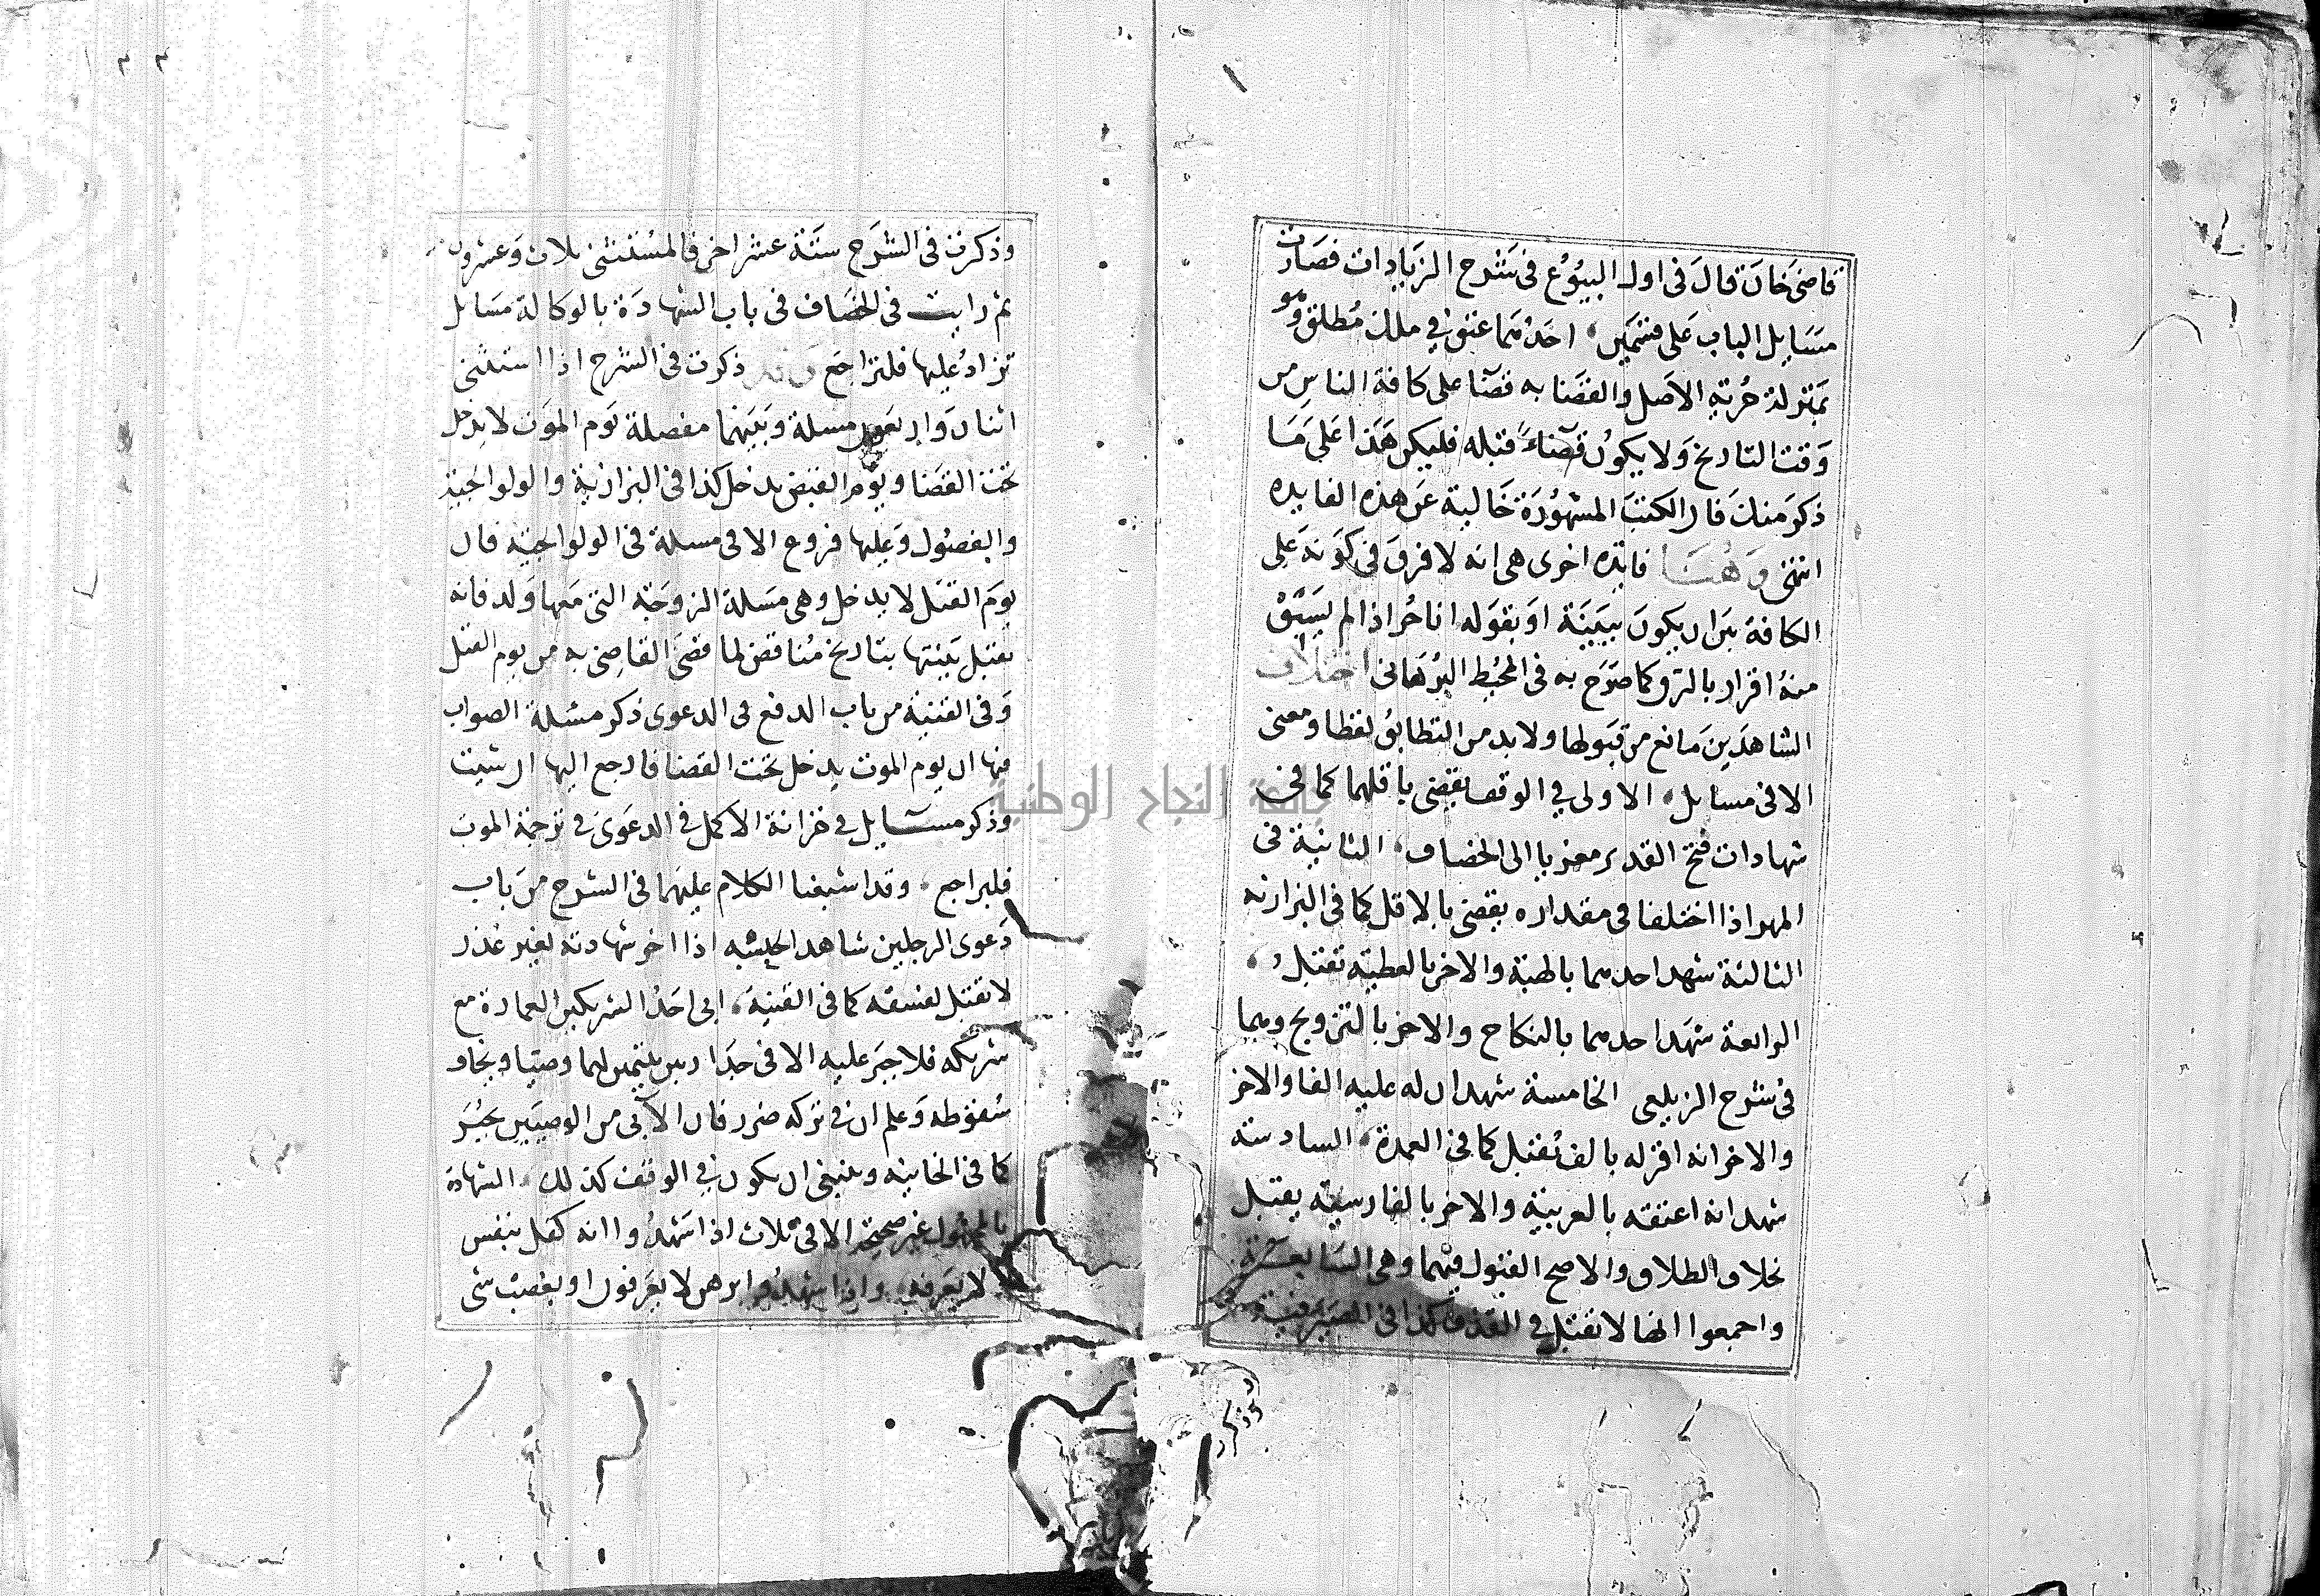 قاضي خان قال في اول البيوع في شرح الزيادات فصارت
مسايل الباب على قسمين احدهما عتق في ملك مطلق وهو
بمنزلة حرية الاصل والقضا به قضا على كافة الناس من
وقت التاريخ ولا يكون قضاء قبله فليكن هذا على ما
ذكر منك فان الكتب المشهورة خالية عن هذه الفايده
انتهى وهنا فايده اخرى هي انه لا فرق في كونه على
الكافة بين ان يكون ببينة او بقوله انا حر اذا لم يسبق
منه اقرار بالرق كما صرح به في المحيط البرهاني اختلاف
الشاهدين مانع من قبولها ولا بد من التطابق لفظا ومعنى
الا في مسايل الاولى في الوقف يقضى باقلهما كما في
شهادات فتح القدير معزيا الى الخصاف الثانية في
المهر اذا اختلفا في مقداره يقضى بالاقل كما في البزازيه
الثالثة شهد احدهما بالهبة والاخر بالعطيه تقبل
الرابعة شهد احدهما بالنكاح والاخر بالتزويج وهما
في شرح الزيلعي الخامسة شهد ان له عليه الفا والاخر
والاخر انه اقر له بالف تقبل كما في العمدة السادسة
شهد انه اعتقه بالعربية والاخر بالفارسيه يقبل
بخلاف الطلاق والاصح القبول فيهما وهي السابعة
واجمعوا انها لا تقبل في القذف كذا في الصيرفية
وذكر
وذكرت في الشرح ستة عشر اخر فالمستثنى ثلاث وعشرون
ثم رايت في الخصاف في باب الشهادة بالوكالة مسايل
تزاد عليها فلتراجع وقد ذكرت في الشرح اذا استثنى
اثنان واربعون مسلة وبينهما مفصلة يوم الموت لا يدخل
تحت القضا ويوم القبض يدخل كذا في البزازية والولوالجية
والفصول وعليها فروع الا في مسلة في الولوالجيه فان
يوم القتل لا يدخل وهي مسلة الزوجة التي معها ولد فانه
يقبل بينتها بتاريخ مناقض لما قضى القاضي به من يوم القتل
وفي القنية من باب الدفع في الدعوى ذكر مسئلة الصواب
فيها ان يوم الموت يدخل تحت القضا فارجع اليها ان شيت
وذكر مسايل في خزانة الاكمل في الدعوى في ترجمة الموت
فليراجع وقد اشبعنا الكلام عليهما في الشرح من باب
دعوى الرجلين شاهد الحسبه اذا اخر شهادته لغير عذر
لا تقبل لفسقه كما في القنية ابى احد الشريكين العمارة مع
شريكه فلا جبر عليه الا في جدار بين يتيمين لهما وصيا ويخاف
سقوطه وعلم ان في تركه ضرر فان الآبي من الوصيين يجبر
كما في الخانيه وينبغي ان يكون في الوقف كذلك الشهادة
بالمجهول غير صحيحة الا في ثلاث اذا شهدوا انه كفل بنفس
لا يعرفه واذا شهدوا برهن لا يعرفون او بغصب شى
جامعة النجاح الوطنية